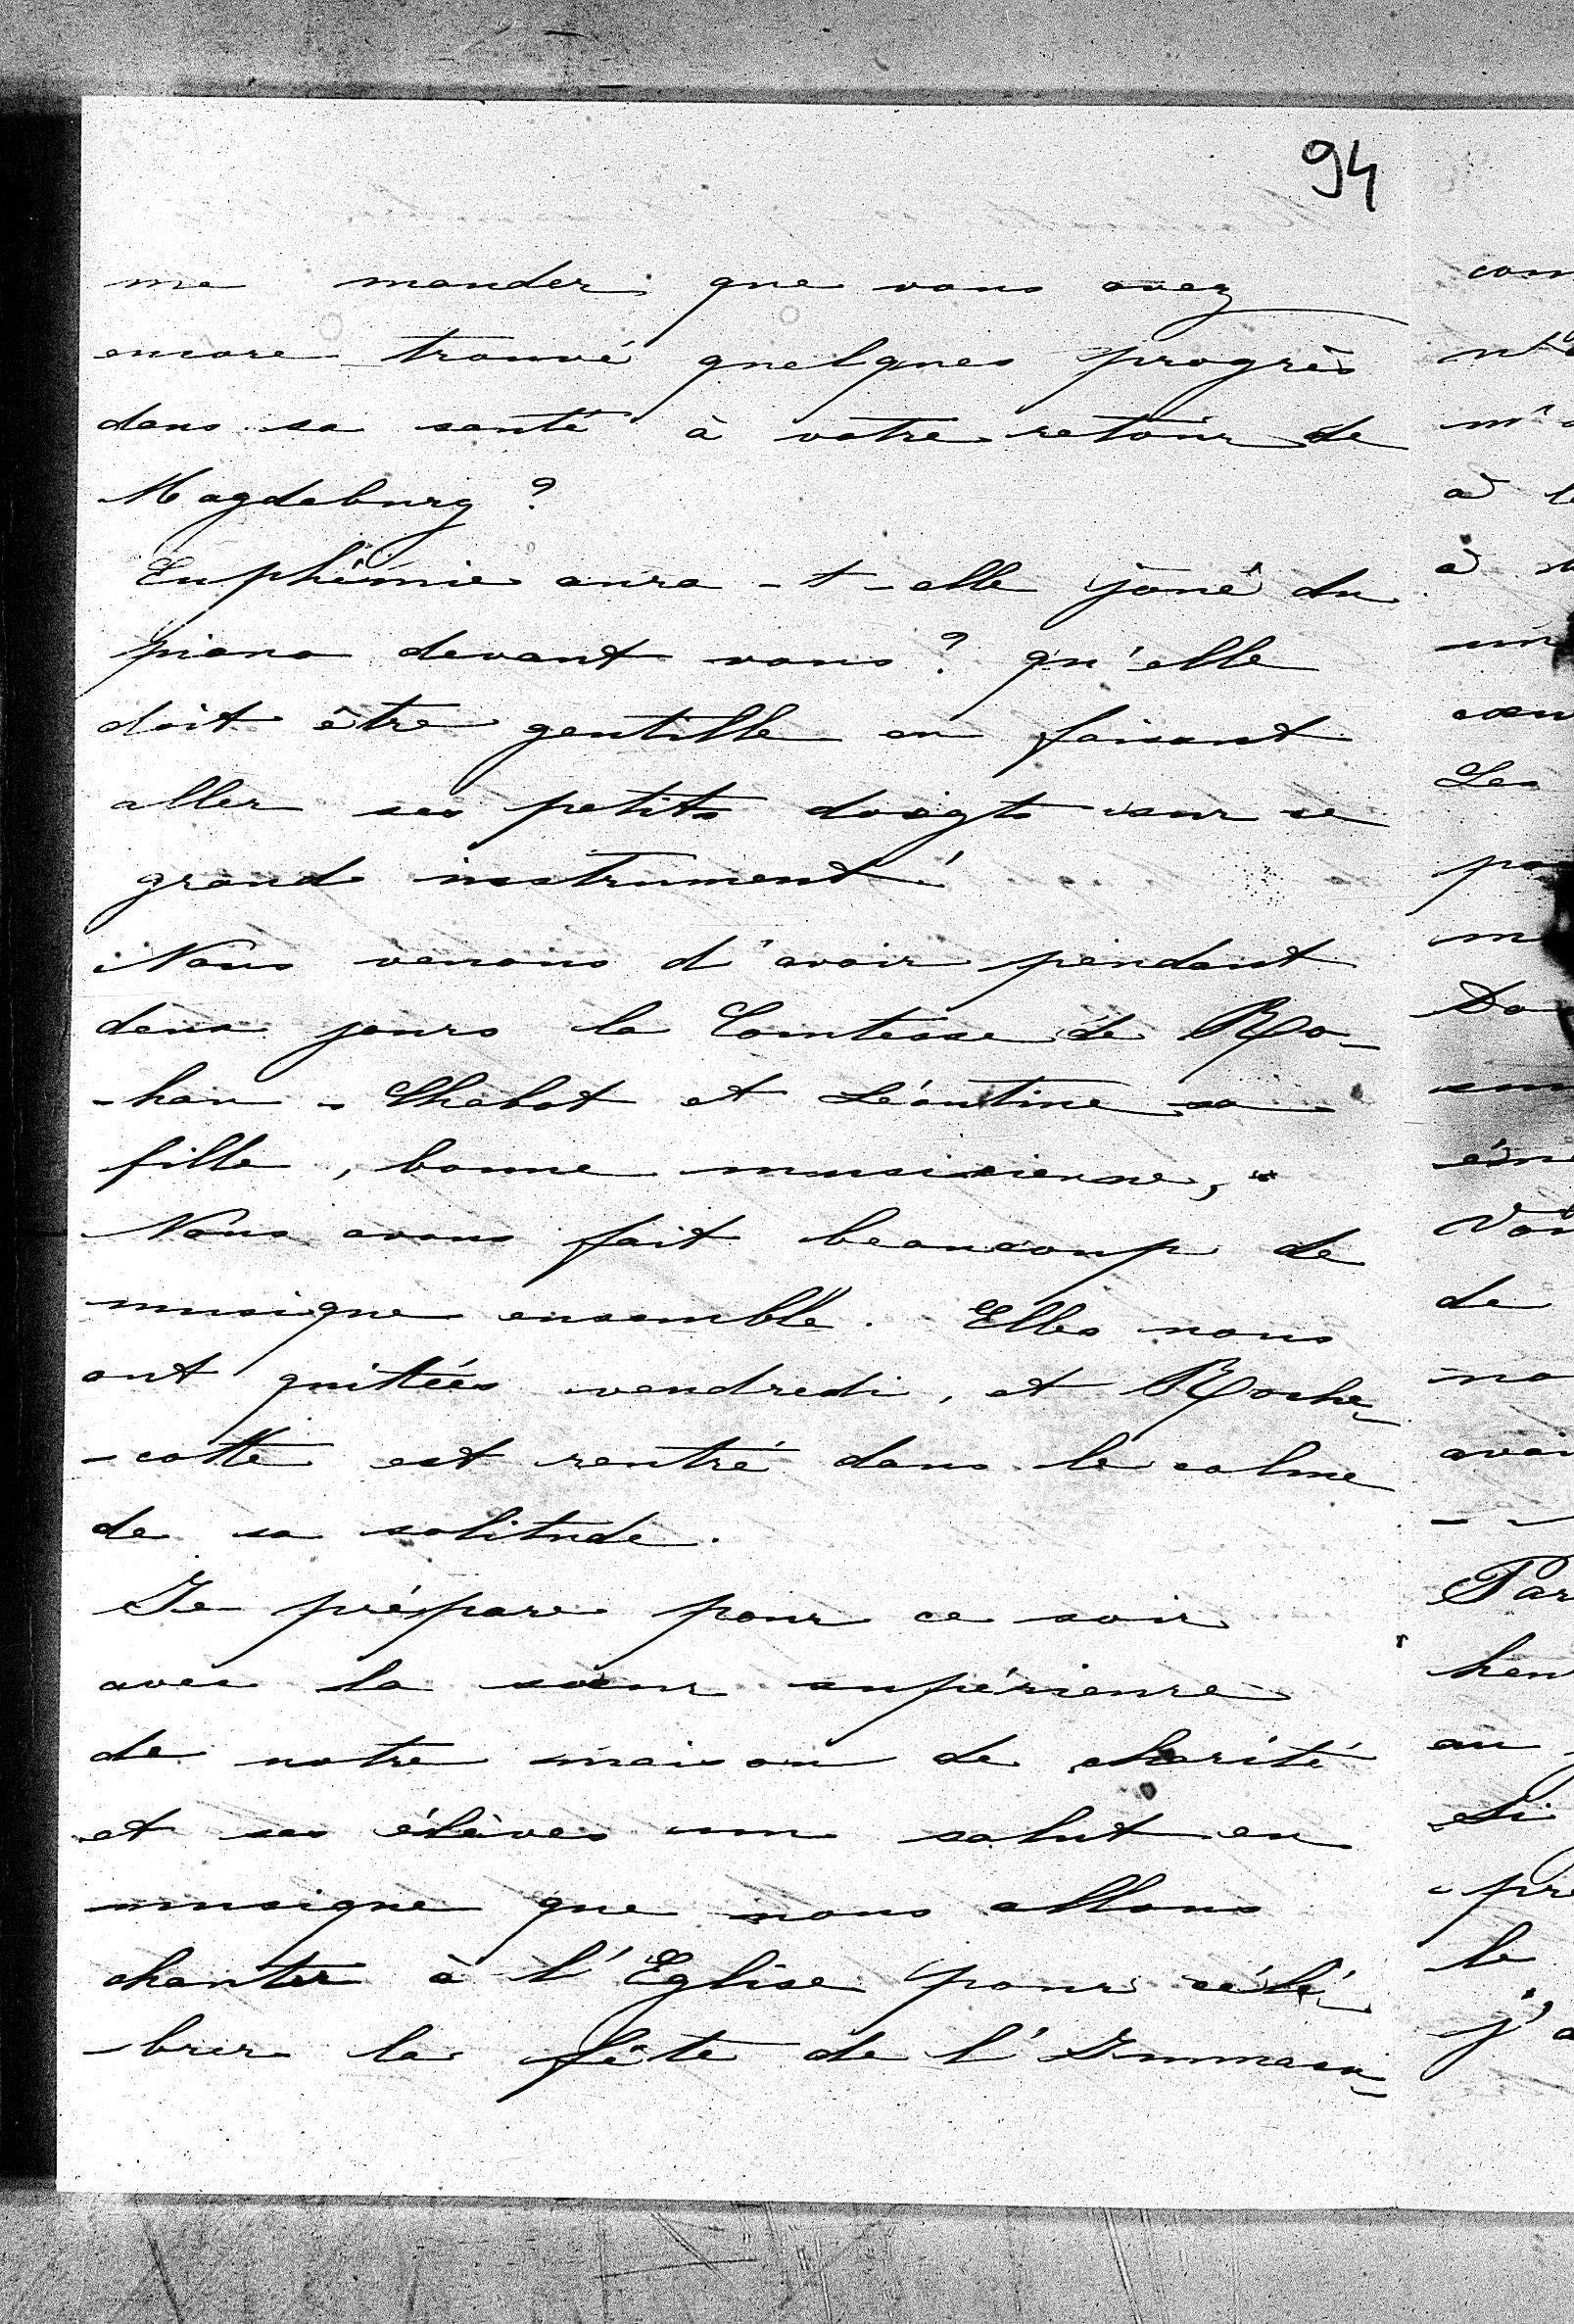 94
me mander que vous avez
encore trouvé quelques progrès
dans sa santé à votre retour de
Magdeburg ?
Euphémie aura-t-elle joué du
piano devant vous ? qu'elle
doit être gentille en faisant
aller ses petits doigts sur ce
grand instrument !
Nous venons d'avoir pendant
deux jours la Comtesse de Ro-
-han-Chabot et Léontine sa
fille, bonne musicienne,
Nous avons fait beaucoup de
musique ensemble. Elles nous
ont quittées vendredi, et Roche-
-cotte est rentré dans le calme
de sa solitude.
Je prépare pour ce soir
avec la sœur supérieure
de notre maison de charité
et ses élèves un salut en
musique que nous allons
chanter à l'Eglise pour célé-
-brer la fête de l'Immacu-
com
m'
à
à
un
Les
Do
de
avai
Par
au
Si
le
j'a